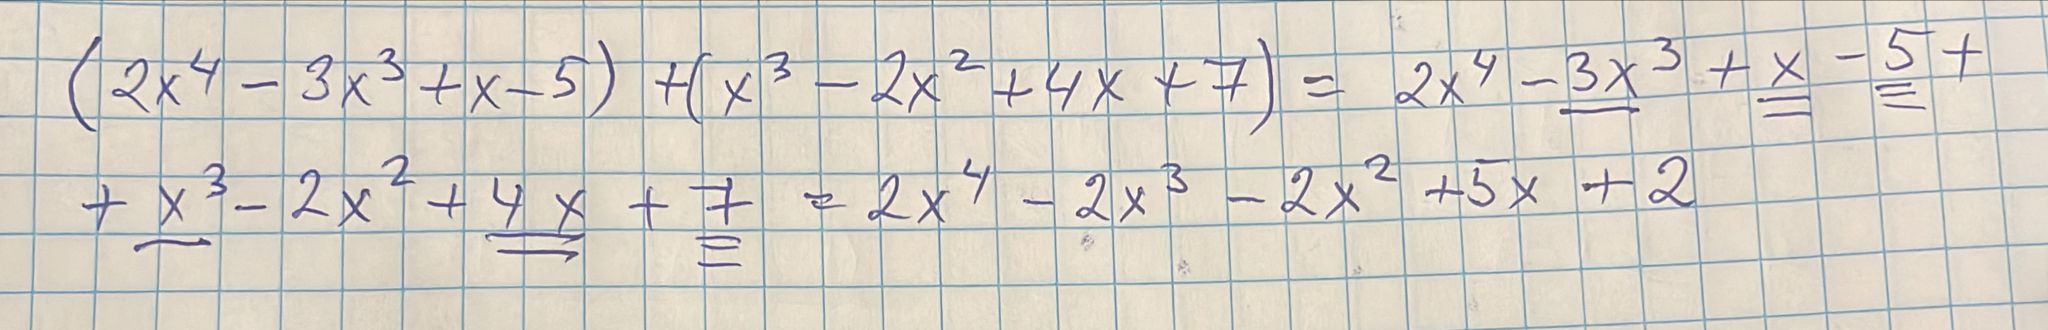 (2x⁴ - 3x³ + x - 5) + (x³ - 2x² + 4x + 7) = 2x⁴ - 3x³ + x - 5 +
+ x³ - 2x² + 4x + 7 = 2x⁴ - 2x³ - 2x² + 5x + 2